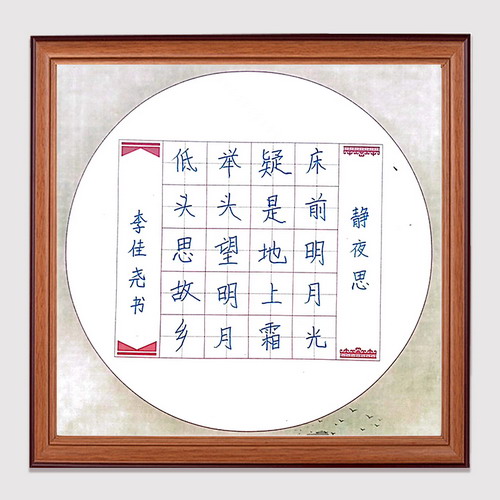 静夜思
床前明月光
疑是地上霜
举头望明月
低头思故乡
李佳尧书